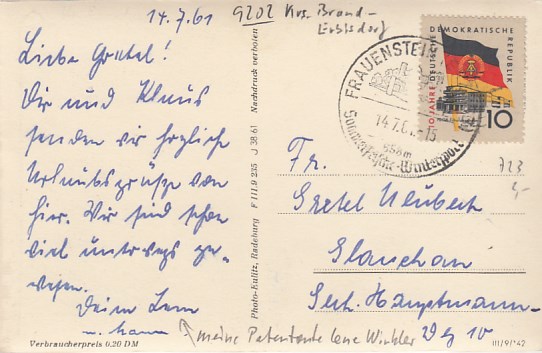 14.7.61
9202 Krs. Brand-
Erbisdorf
Liebe Gretel!
Dir und Klaus
senden wir herzliche
Urlaubsgrüße von
hier. Wir sind schon
viel unterwegs ge-
wesen.
Deine Lene
u. Hans
meine Patentante Lene Winkler
Verbraucherpreis 0,20 DM
Photo-Fulitz, Radeburg F III.9 235 J 38 61 Nachdruck verboten
FRAUENSTEIN
14.7.61
658m
Sommerfrische-Wintersport
DEUTSCHE DEMOKRATISCHE REPUBLIK
10 JAHRE
10
723
Fr.
Gretel Neubert
Glauchau
Gerh. Hauptmann-
Weg 10
III/9/142